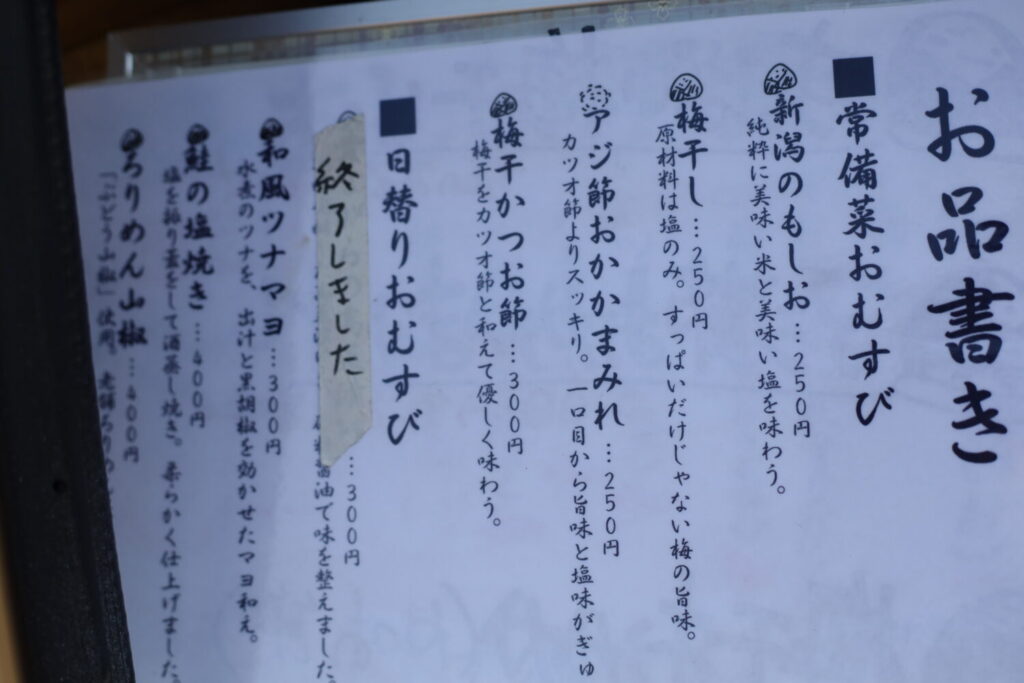 お品書き
■常備菜おむすび
新潟のもしお…250円
純粋に美味い米と美味い塩を味わう。
梅干し…250円
原材料は塩のみ。すっぱいだけじゃない梅の旨味。
アジ節おかかまみれ…250円
カツオ節よりスッキリ。一口目から旨味と塩味がぎゅ
梅干かつお節…300円
梅干をカツオ節と和えて優しく味わう。
■日替りおむすび
…300円
終了しました
醤油で味を整えました。
和風ツナマヨ…300円
水煮のツナを、出汁と黒胡椒を効かせたマヨ和え。
鮭の塩焼き…400円
塩を振り蓋をして酒蒸し焼き。柔らかく仕上げました。
ろりめん山椒…400円
「ぶどう山椒」使用。老舗